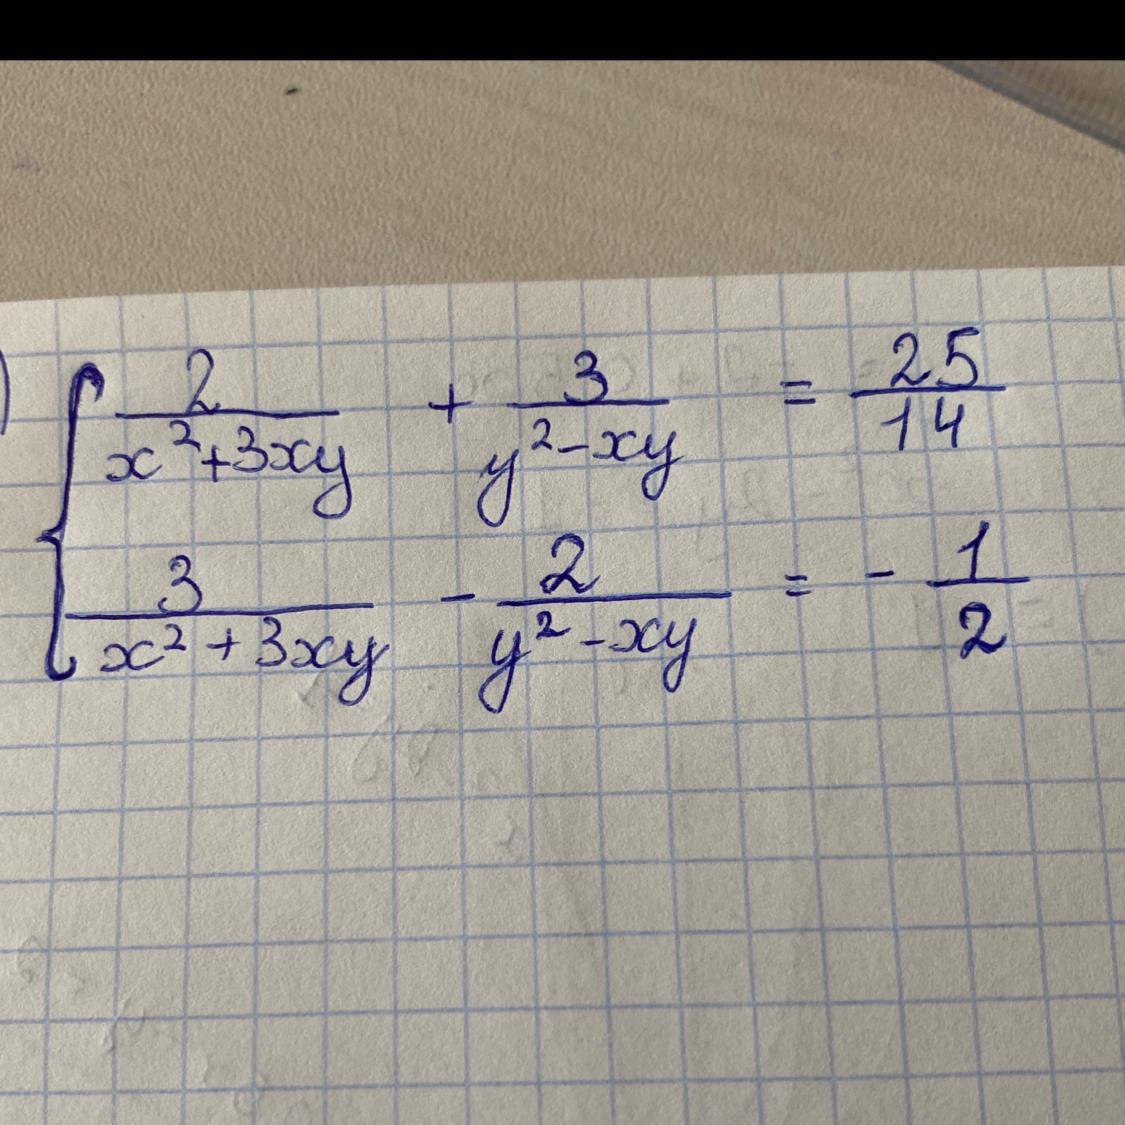 ) { 2/(x²+3xy) + 3/(y²-xy) = 25/14
3/(x²+3xy) - 2/(y²-xy) = -1/2